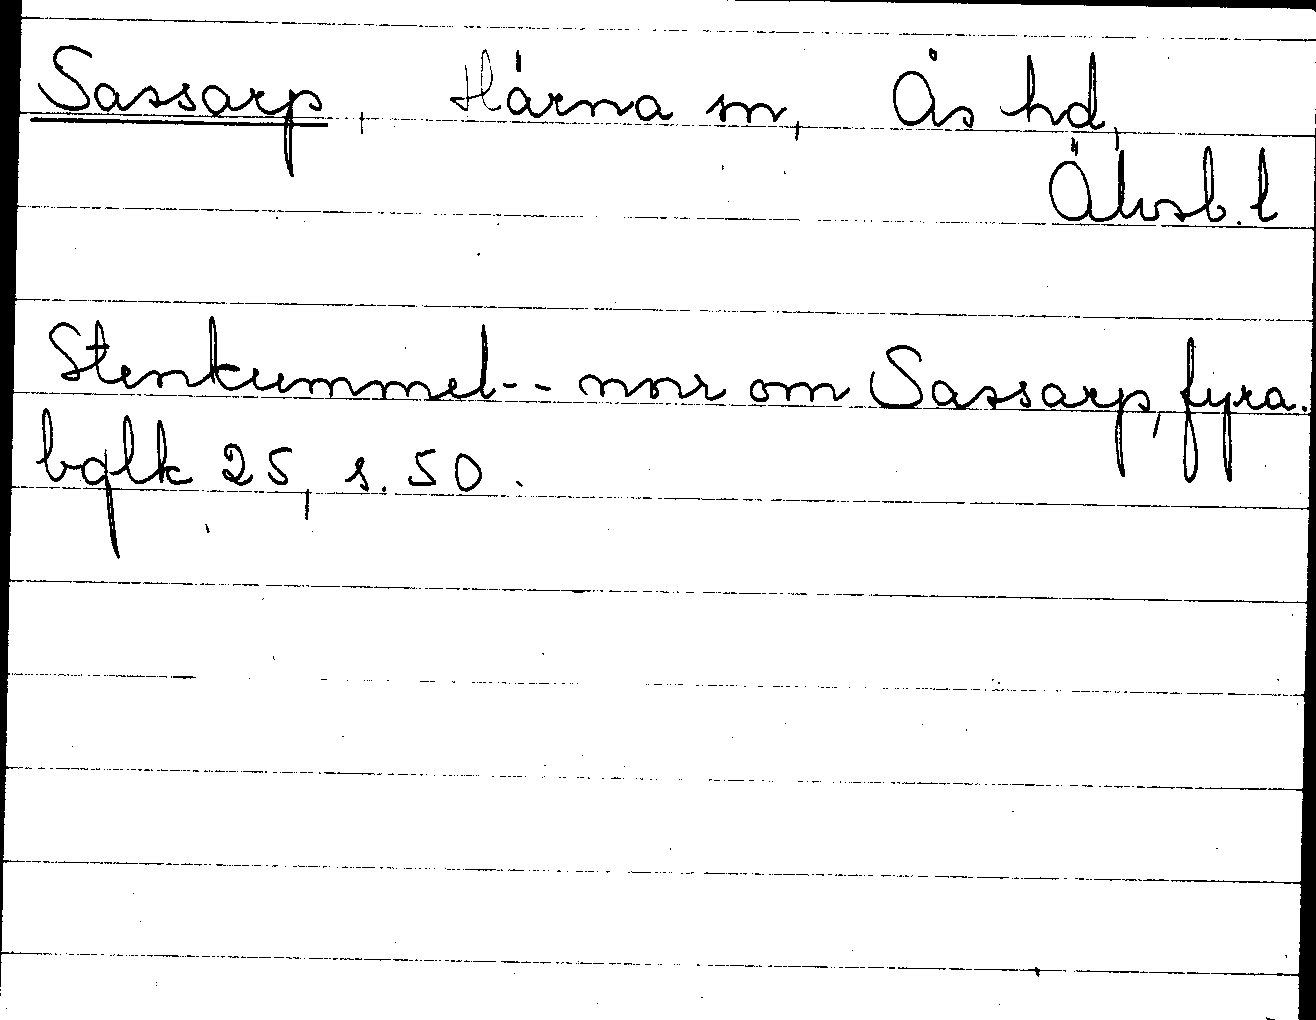 Sassarp, Härna sn, Ås hd,
Älvsb. l
Stenkummel-- nnr om Sassarp, fyra.
bglk 25, s. 50.